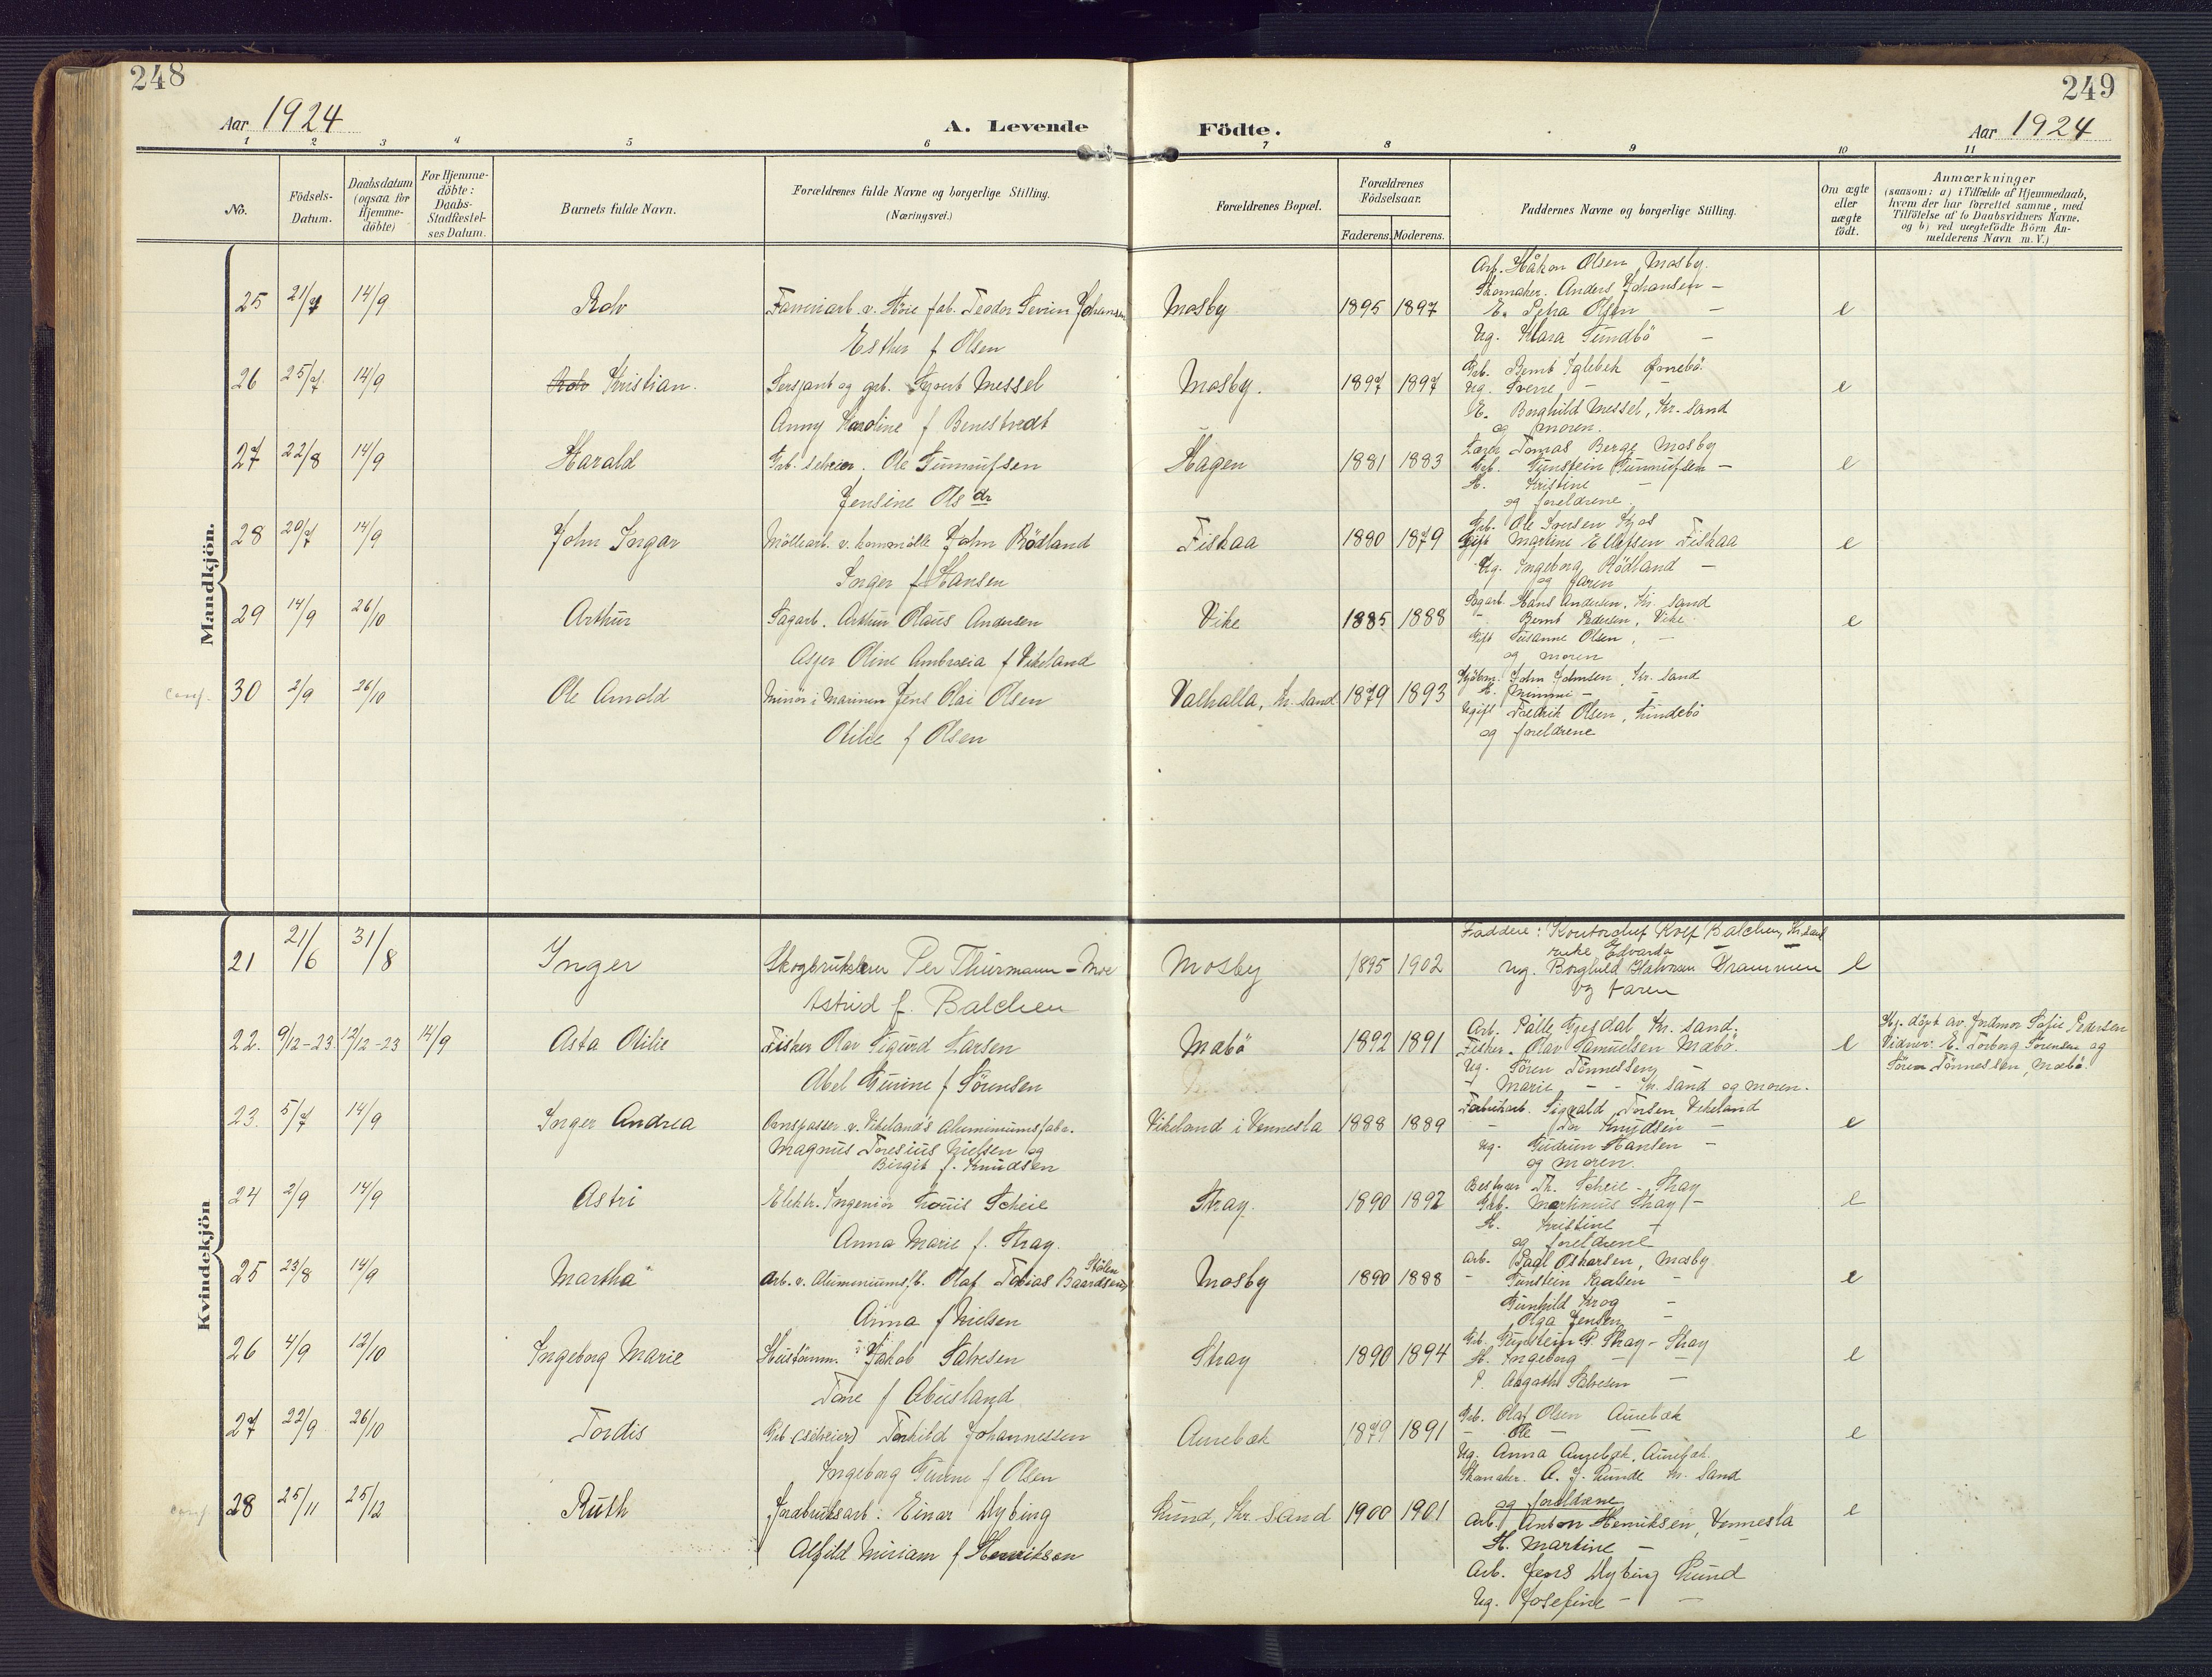 248
Aar 1924
A. Levende
1 2 3 4 5 6
No.
Födsels-
Datum.
Daabsdatum
(ogsaa for
Hjemme-
döbte)
For Hjemme-
döbte:
Daabs-
Stadfæstel-
ses Datum.
Barnets fulde Navn.
Forældrenes fulde Navne og borgerlige Stilling.
(Næringsvei.)
249
Födte.
Aar 1924
7 8 9 10 11
Forældrenes Bopæl.
Forældrenes
Födselsaar.
Faderens. Moderens.
Faddernes Navne og borgerlige Stilling.
Om ægte
eller
uægte
födt.
Anmærkninger
(saasom: a) i Tilfælde af Hjemmedaab,
hvem der har forrettet samme, med
Tilföielse af to Daabsvidners Navne.
og b) ved uægtefödte Börn An-
melderens Navn m. V.)
Mandkjön.
25 21/7 14/9 Rolv
Teodor Severin Johansen
Esther f Olsen
Mosby 1895 1897
Arb. Håkon Olsen, Mosby.
Skomaker. Anders Johansen -
E. Olsen -
Ug. Klara Sundbö -
e
26 25/7 14/9 Rolv Kristian.
Sersjant og grb. Messel
Anny Karoline f Benestvedt
Mosby. 1897 1897
Grb. Bernt Iglebek
Ug. Sverre -
E. Borghild Messel, Kr. sand
og moren.
e
27 22/8 14/9 Harald
Grb. selveier. Ole Gunnufsen
Jensine Olsdr
Hagen 1881 1883
Tomas Berge Mosby
Grb. Gunstein Gunnufsen -
H. Kristine -
og foreldrene.
e
28 20/7 14/9 John Ingar
Möllearb. v. John Rödland
Inger f Hansen
Fiskaa 1880 1879
Grb. Ole
Gift Martine Ellefsen Fiskaa
Ug. Ingeborg Rödland -
og faren
e
29 14/9 26/10 Arthur
Sagarb. Arthur Olaus Andersen
Oline f Vikeland
Vike 1885 1888
Sagarb. Hans Andersen, Kr. sand
- Bernt Pedersen, Vike
Gift Susanne Olsen, -
og moren
e
conf. 30 2/9 26/10 Ole Arnold
Minör i Marinen Jens Olai Olsen
Otilie f Olsen
Valhalla, Kr. sand 1879 1893
Kjöbm. John Johnsen, Kr. sand
H. Mimmi - -
Ugift Fredrik Olsen,
og foreldrene
Kvindekjön
21 21/6 31/8 Inger
Skogbruksl. Per Thurmann-Moe
Astrid f. Balchen
Mosby 1895 1902
Faddere: Kontorchef Rolf Balchen, Kr. sand
Edvarda - -
ug. Borghild Halvorsen Drammen
og faren
e
22. 9/12-23 12/12-23 14/9 Asta Otilie
Fisker Olav Sigurd Larsen
Abel Gurine f Sörensen
Mæbö 1892 1891
Arb. Palle Gjesdal Kr. sand.
Fisker. Olav Samuelsen Mæbö.
Ug. Sören Tönnessen -
- Marie - - Kr. sand og moren.
e
Hj. döpt av Jordmor Sofie Pedersen
Vidner: E. Torborg Sörensen og
Sören Tönnessen, Mæbö.
23. 5/7 14/9 Inger Andrea
Ovnspasser v. Vikeland's aluminiumsfabr.
Magnus Toresius Nielsen og
Birgit f. Knudsen
Vikeland i Vennesla 1888 1889
Fabrikarb. Sigvald Vikeland
- Tor Knudsen -
ug. Gudrun Hansen -
og moren.
e
24 2/9 14/9 Astri
Elektr. Ingeniör Louis Scheie
Anna Marie f. Stray.
Stray. 1890 1892
Bestyrer Th. Scheie - Stray
Grb. Martinius Stray -
H. Kristine -
og foreldrene
e
25 23/8 14/9 Martha
Arb. v. Aluminiumsfb. Olaf Tobias Baardsen Stölen
Anna f Nielsen
Mosby 1890 1888
Arb. Oskarsen, Mosby
- Gunstein -
Gunhild Krog -
Olga Jensen -
e
26 4/9 12/10 Ingeborg Marie
Hustömm. Jakob Salvesen
Tone f Abusland
Stray 1890 1894
Grb. Gunstein G. Stray - Stray
H. Ingeborg - -
P. Aagathe Salvesen -
e
27 22/9 26/10 Tordis
Grb. (selveier) Torkild Johannessen
Ingeborg Gurine f Olsen
Aurebæk 1879 1891
Grb. Olaf Olsen Aurebæk
- Ole - -
Ug. Anna Aurebæk, Aurebæk.
Skomaker. A. J. Lunde Kr. Sand
og foreldrene
e
conf 28 25/11 25/12 Ruth
Jordbruksarb: Einar Nybing
Alfild Miriam f Henriksen
Lund, Kr. sand 1900 1901
Arb. Anton Henriksen, Vennesla
H. Martine - -
Arb. Jens Nybing Lund
Ug. Josefine - -
e